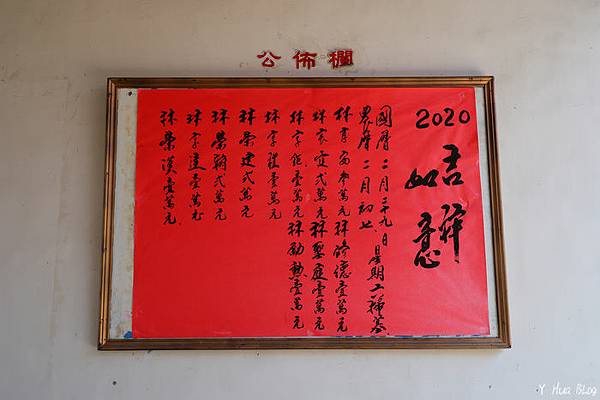 公佈欄
2020
吉祥
如意
國曆二月二十九日星期六掃墓
農曆二月初七
林 參萬元林修德壹萬元
林 弍萬元林 庭壹萬元
林字 壹萬元林 勲壹萬元
林字 壹萬元
林榮建弍萬元
林榮 弍萬元
林字達壹萬元
林榮漢壹萬元
Y Hua BLog